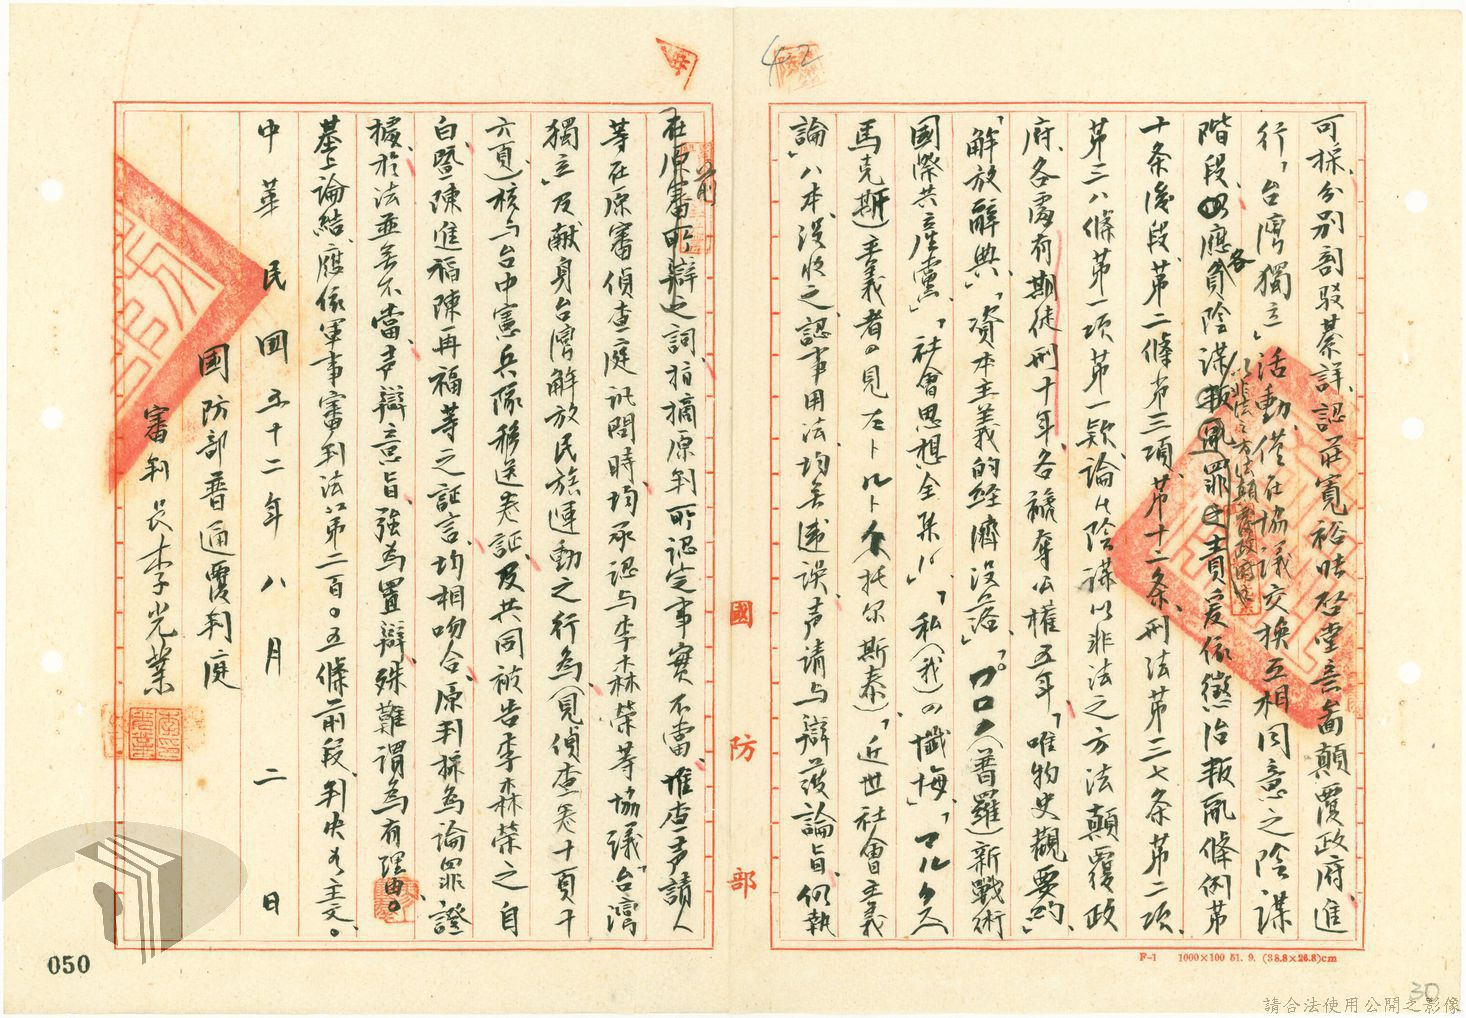 42
可採、分別剖駁綦詳、認莊寬裕等啓堂意圖顛覆政府、進
行「台灣獨立」活動、僅在協議交換互相同意之陰謀
階段、應各負陰謀以非法之方法顛覆政府罪之責、爰依懲治叛亂條例第
十条後段、第二條第三項、第十二条、刑法第三七条第二項、
第三八條第一項第一款、論以陰謀以非法之方法顛覆政
府、各處有期徒刑十年、各褫奪公權五年、「唯物史觀要約」、
「解放辭典」、「資本主義的経濟沒落」、「プロ(普羅)新戰術」
國際共產黨」、「社會思想全集」、「私(我)の懺悔」、「マルクス(
馬克斯)主義者の見たトルトイ(托尔斯泰)」、「近世社會主義
論」八本、沒收之、認事用法、均無違誤、声請与辯護論旨、仍執
在原審前所辯之詞、指摘原判所認定事實不當、惟查声請人
等在原審偵查庭訊問時、均承認与李森榮等協議「台灣
獨立」及献身台灣解放民族運動之行為(見偵查卷十頁十
六頁)核与台中憲兵隊移送卷証、及共同被告李森榮之自
白暨陳進福陳再福等之証言、均相吻合、原判採為論罪證
據、於法並無不當、声辯意旨、強為置辯、殊難謂為有理由。
基上論結、應依軍事審判法第二百〇五條前段、判决如主文。
中華民國五十二年八月二日
國防部普通覆判庭
審判長李光業
國防部
F-1 1000×100 51. 9. (38.8×26.8)cm
050
30
請合法使用公開之影像